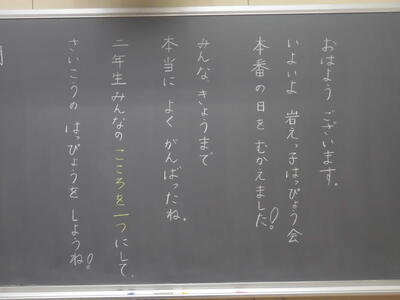 おはよう ございます。
いよいよ 岩えっ子はっぴょう会
本番の日を むかえました!
みんな きょうまで
本当に よく がんばったね。
二年生 みんなの こころを一つにして、
さいこうの はっぴょうを しようね!